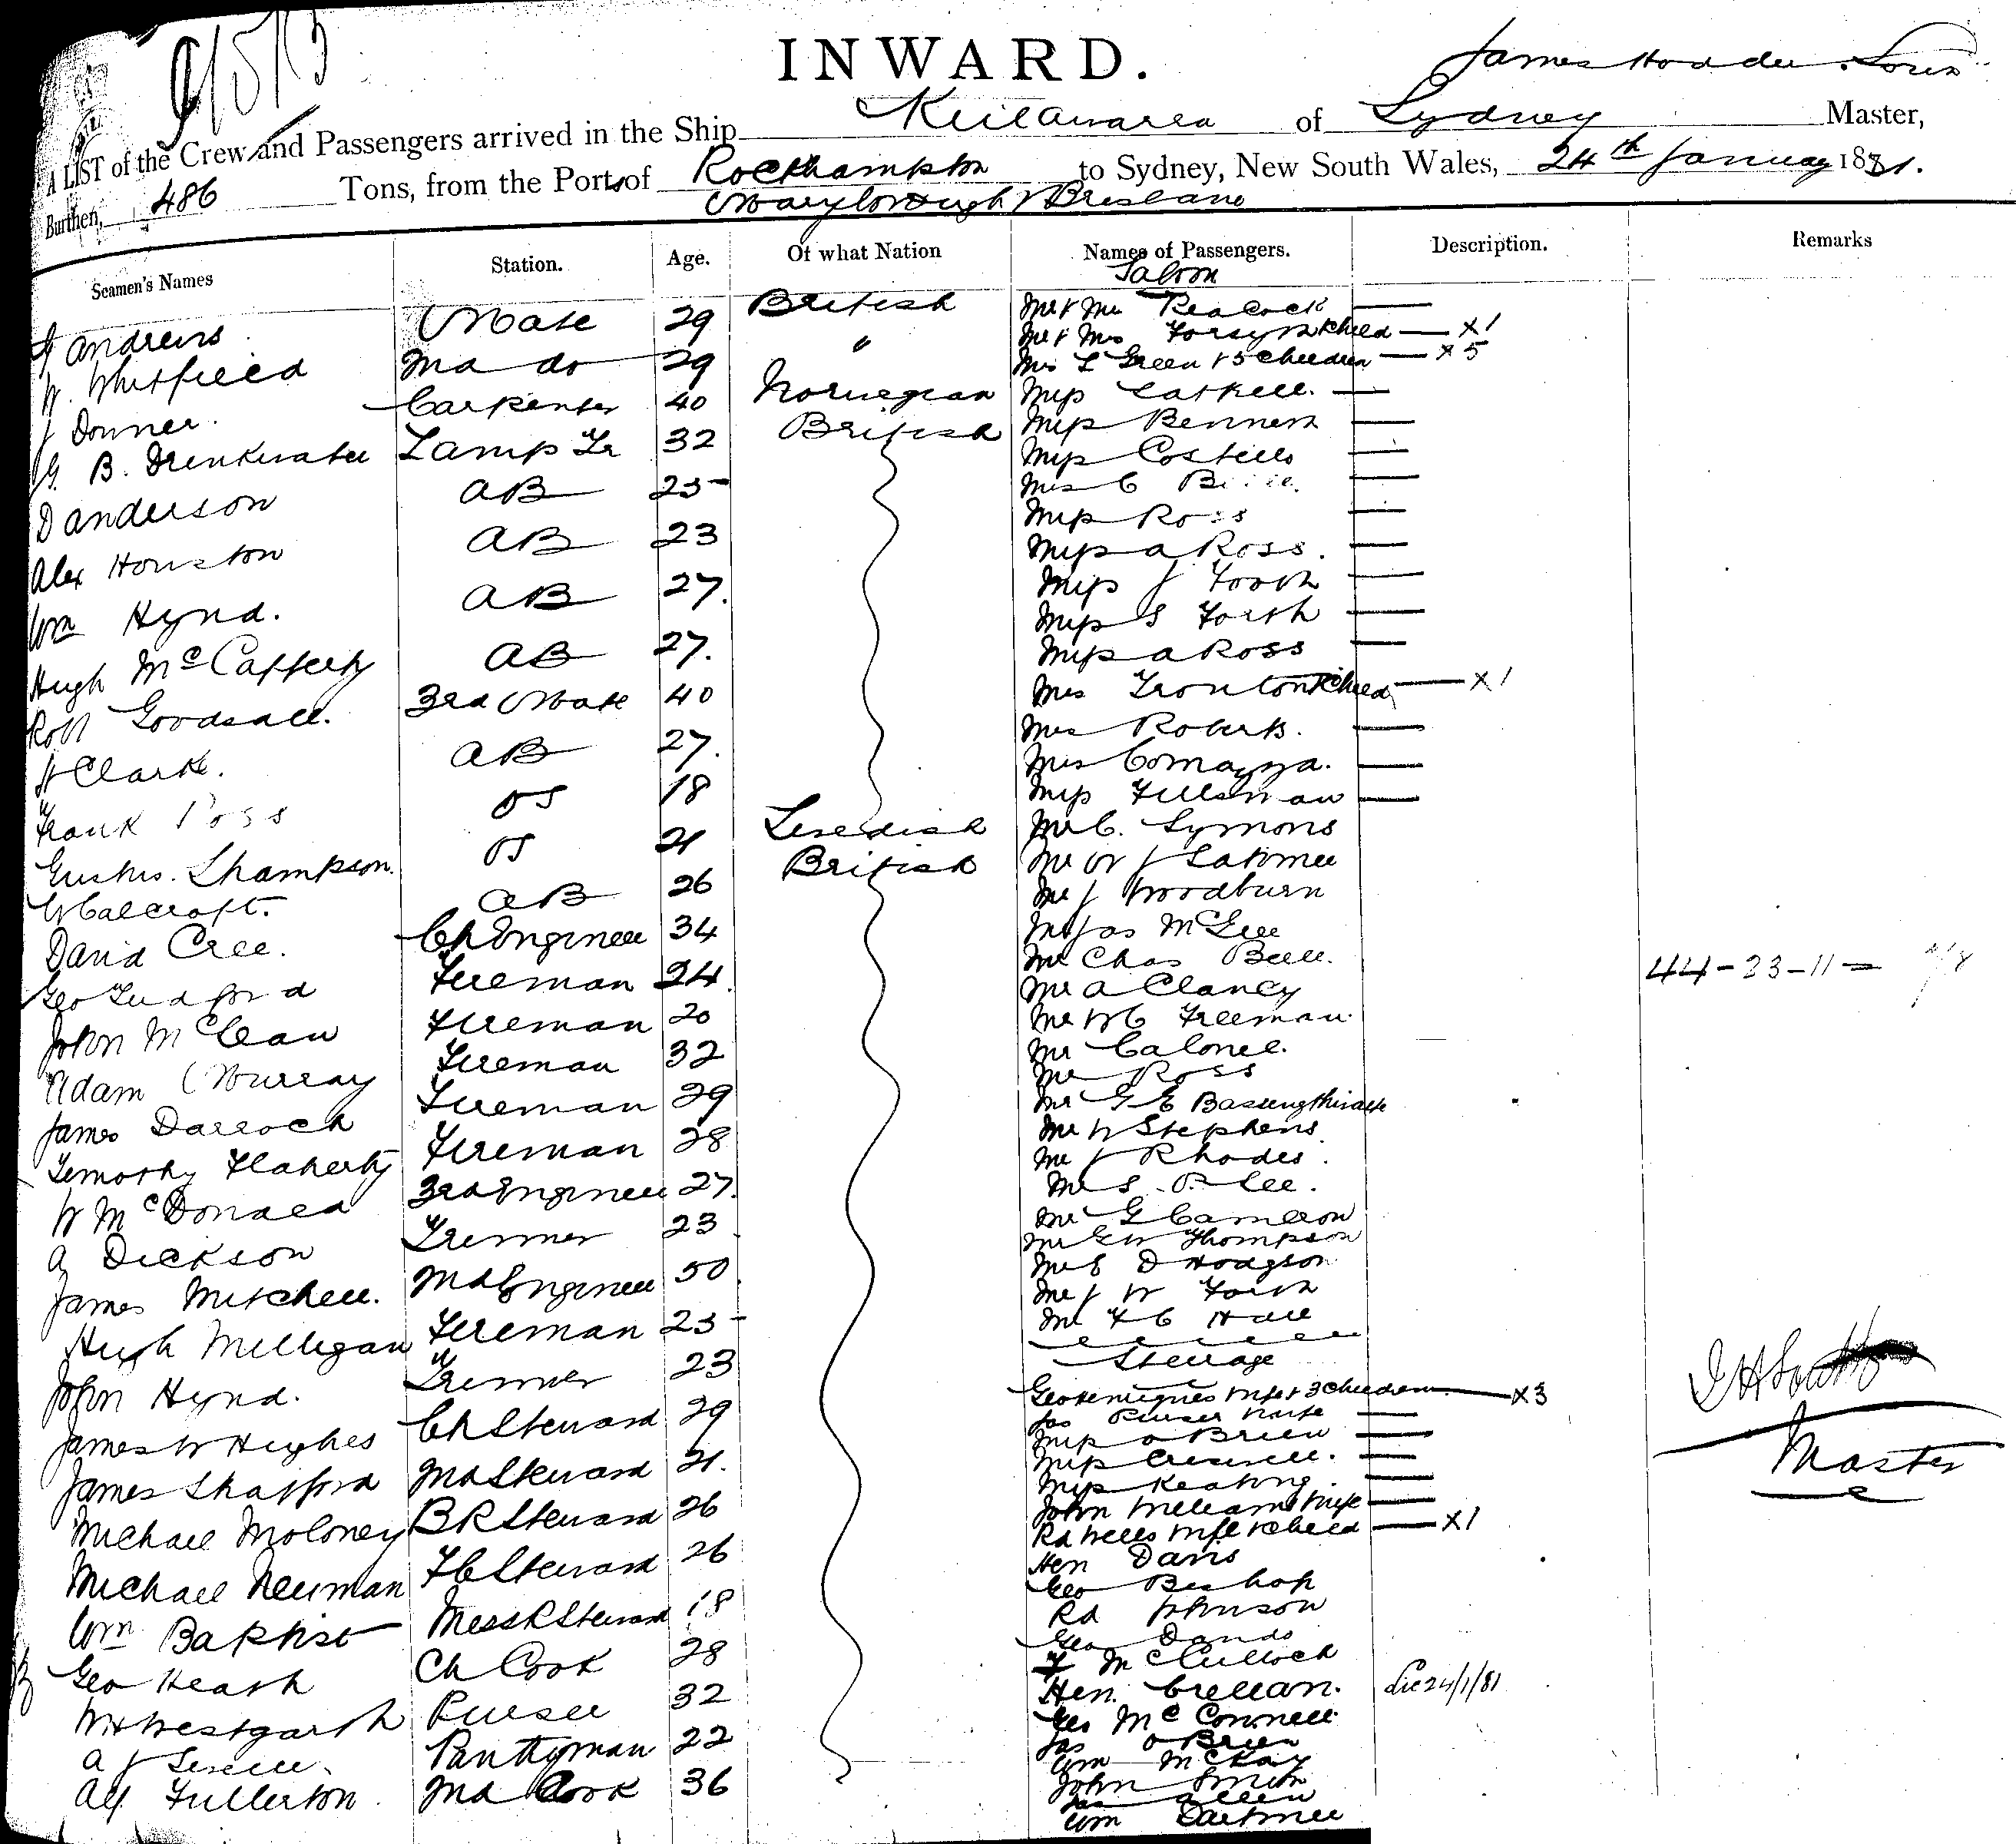 9/5/3
INWARD.
James Hodder Louis
A LIST of the Crew and Passengers arrived in the Ship Keilawarra of Sydney Master,
Burthen, 486 Tons, from the Ports of Rockhampton to Sydney, New South Wales, 24th January 1881.
Maryborough & Brisbane
Seamen's Names Station. Age. Of what Nation Names of Passengers. Description. Remarks
Saloon
Andrews Mate 29 British Mr & Mrs Peacock
W. Whitfield 2nd do 29 " Mr & Mrs Forsyth & Child x1
Mrs L Green & 5 Children x5
J Donner. Carpenter 40 Norwegian Miss Gaskell.
G. B. Drinkwater Lamp Tr 32 British Miss Bennett
Miss Costello
D Anderson AB 25 Mrs C
Miss Ross
Alex Houston AB 23 Miss A Ross.
Wm Hynd. AB 27. Miss J Forth
Miss S Forth
Hugh McCafferty AB 27. Miss A Ross
Robt Goodsall. 3rd Mate 40 Mrs Trouton & Child x1
Mrs Roberts.
H Clark. AB 27. Mrs
Frank Ross OS 18 Miss Fillsman
Gustus. Shampson. OS 21 Swedish Mr C. Symons
W Calcroft. AB 26 British Mr W J Latimer
Mr J Woodburn
David Cree. Ch Engineer 34 Mr Jas McGee
Mr Chas Bell. 44-23-11=78
Geo Ludford Fireman 24. Mr A Clancy
John McLean Fireman 20 Mr W C Freeman.
Adam Murray Fireman 32 Mr Calonel.
Mr Ross
James Darroch Fireman 29 Mr G E Bassingthwaite
Timothy Flaherty Fireman 28 Mr W Stephens
Mr J Rhodes.
W McDonald 3rd Engineer 27. Mr S. Lee.
A Dickson Trimmer 23 Mr G Cameron
Mr G W Thompson
James Mitchell. 2nd Engineer 50 Mr E D Hodgson
Mr J W Forth
Hugh Milligan Fireman 25 Mr F C Hall
Steerage
John Hynd. Trimmer 23 Geo wife & 3 Children x3
James W Hughes Ch Steward 29 Jas Purser & Wife
Miss O'Brien
James Shafford 2nd Steward 21. Miss Creswell.
Miss Keating
Michael Moloney BR Steward 26 John Williams & Wife
Rd Wells Wife & Child x1
Michael Newman FC Steward 26 Hen Davis
Geo Bishop
Wm Baptist Mess R Steward 18 Rd Johnson
Geo Dands
Geo Heath Ch Cook 28 F McCulloch
W H Westgarth Purser 32 Hen. Crellan. Lic 24/1/81
Geo McConnell
A J Sewell. Pantryman 22 Jas O'Brien
Wm McKay
Alf Fullerton 2nd Cook 36 John Smith
Jas Allen
Wm Dartnell
Master